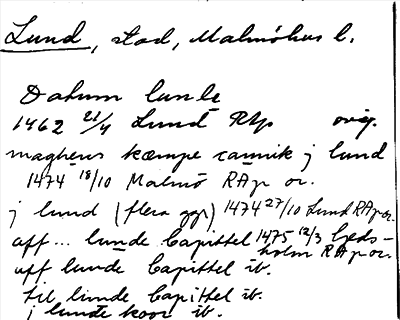 Lund, stad, Malmöhus l.
Datum lunde
1462 21/4 Lund RAp orig.
magnens kæmpe cannik j lund
1474 18/10 Malmö RAp or.
j lund (flera ggr) 1474 27/10 Lund RAp or.
aff... lunde Capittel 1475 12/3 Geds-
holm RAp or.
uff lunde Capittel ib.
til lunde Capittel ib.
j lunde koor ib.